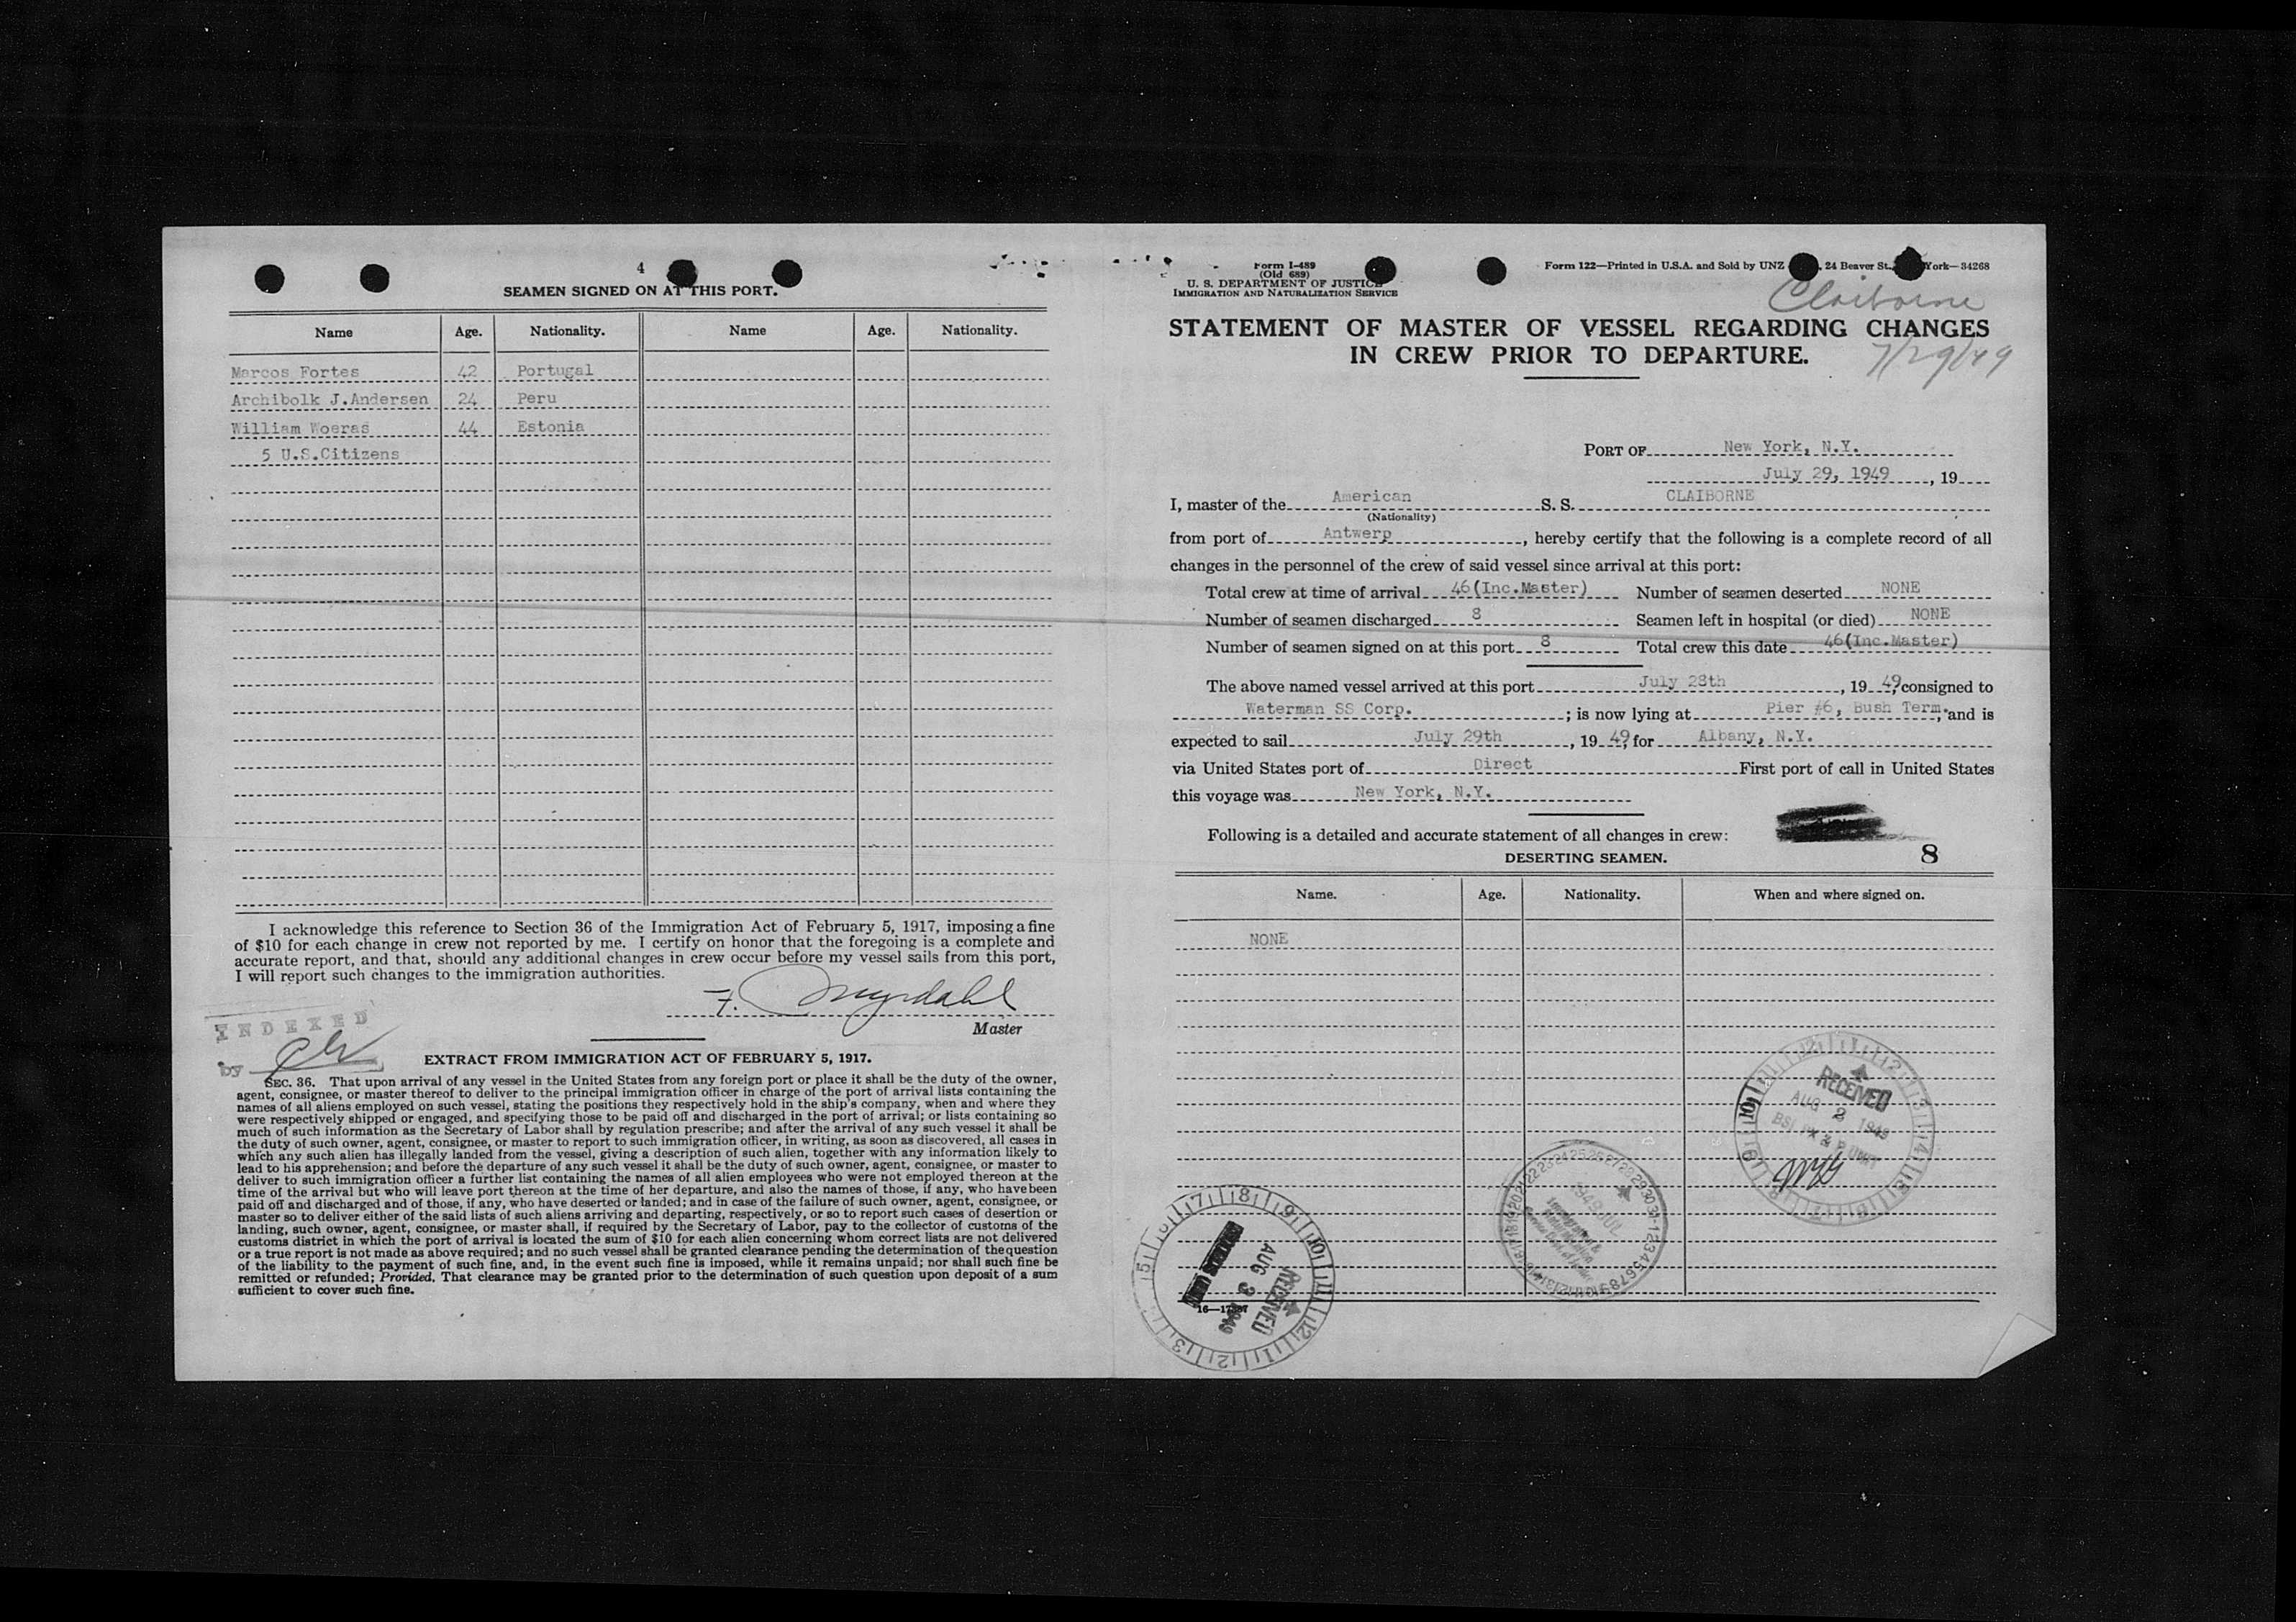 4
SEAMEN SIGNED ON AT THIS PORT.
Name Age. Nationality. Name Age. Nationality.
Marcos Fortes 42 Portugal
Archibolk J.Andersen 24 Peru
William Woeras 44 Estonia
5 U.S.Citizens
I acknowledge this reference to Section 36 of the Immigration Act of February 5, 1917, imposing a fine
of $10 for each change in crew not reported by me. I certify on honor that the foregoing is a complete and
accurate report, and that, should any additional changes in crew occur before my vessel sails from this port,
I will report such changes to the immigration authorities.
F. Myrdahl
Master
INDEXED
by
EXTRACT FROM IMMIGRATION ACT OF FEBRUARY 5, 1917.
SEC. 36. That upon arrival of any vessel in the United States from any foreign port or place it shall be the duty of the owner,
agent, consignee, or master thereof to deliver to the principal immigration officer in charge of the port of arrival lists containing the
names of all aliens employed on such vessel, stating the positions they respectively hold in the ship's company, when and where they
were respectively shipped or engaged, and specifying those to be paid off and discharged in the port of arrival; or lists containing so
much of such information as the Secretary of Labor shall by regulation prescribe; and after the arrival of any such vessel it shall be
the duty of such owner, agent, consignee, or master to report to such immigration officer, in writing, as soon as discovered, all cases in
which any such alien has illegally landed from the vessel, giving a description of such alien, together with any information likely to
lead to his apprehension; and before the departure of any such vessel it shall be the duty of such owner, agent, consignee, or master to
deliver to such immigration officer a further list containing the names of all alien employees who were not employed thereon at the
time of the arrival but who will leave port thereon at the time of her departure, and also the names of those, if any, who have been
paid off and discharged and of those, if any, who have deserted or landed; and in case of the failure of such owner, agent, consignee, or
master so to deliver either of the said lists of such aliens arriving and departing, respectively, or so to report such cases of desertion or
landing, such owner, agent, consignee, or master shall, if required by the Secretary of Labor, pay to the collector of customs of the
customs district in which the port of arrival is located the sum of $10 for each alien concerning whom correct lists are not delivered
or a true report is not made as above required; and no such vessel shall be granted clearance pending the determination of the question
of the liability to the payment of such fine, and, in the event such fine is imposed, while it remains unpaid; nor shall such fine be
remitted or refunded; Provided, That clearance may be granted prior to the determination of such question upon deposit of a sum
sufficient to cover such fine.
Form I-489
(Old 689)
U. S. DEPARTMENT OF JUSTICE
IMMIGRATION AND NATURALIZATION SERVICE
Form 122—Printed in U.S.A. and Sold by UNZ 24 Beaver St., York—34268
Claiborne
STATEMENT OF MASTER OF VESSEL REGARDING CHANGES
IN CREW PRIOR TO DEPARTURE.
7/29/49
PORT OF New York, N.Y.
July 29, 1949, 19
I, master of the American S. S. CLAIBORNE
(Nationality)
from port of Antwerp, hereby certify that the following is a complete record of all
changes in the personnel of the crew of said vessel since arrival at this port:
Total crew at time of arrival 46(Inc.Master) Number of seamen deserted NONE
Number of seamen discharged 8 Seamen left in hospital (or died) NONE
Number of seamen signed on at this port 8 Total crew this date 46(Inc.Master)
The above named vessel arrived at this port July 28th, 19 49, consigned to
Waterman SS Corp. ; is now lying at Pier #6, Bush Term., and is
expected to sail July 29th, 19 49, for Albany, N.Y.
via United States port of Direct First port of call in United States
this voyage was New York, N.Y.
Following is a detailed and accurate statement of all changes in crew:
DESERTING SEAMEN.
8
Name. Age. Nationality. When and where signed on.
NONE
RECEIVED
AUG 2 1949
1949 JUL
Immigration &
Naturalization
RECEIVED
AUG 3 1949